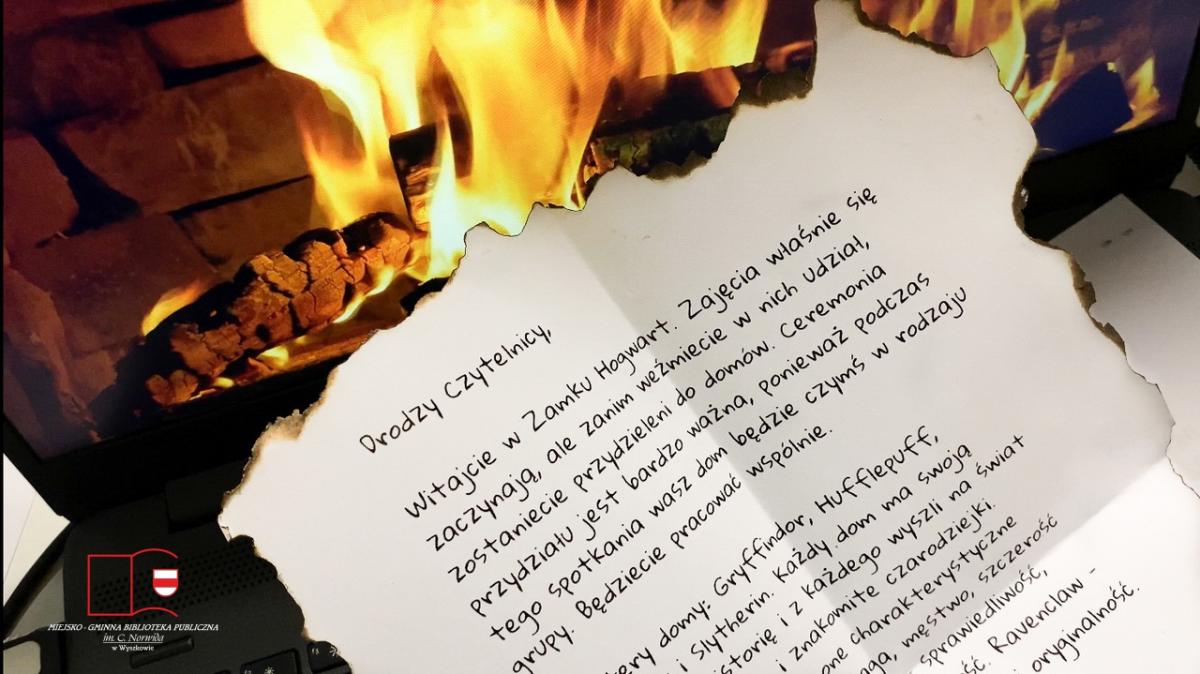 Drodzy Czytelnicy,
Witajcie w Zamku Hogwart. Zajęcia właśnie się
zaczynają, ale zanim weźmiecie w nich udział,
zostaniecie przydzieleni do domów. Ceremonia
przydziału jest bardzo ważna, ponieważ podczas
tego spotkania wasz dom będzie czymś w rodzaju
grupy. Będziecie pracować wspólnie.
domy: Gryffindor, Hufflepuff,
i Slytherin. Każdy dom ma swoją
i z każdego wyszli na świat
i znakomite czarodziejki.
charakterystyczne
męstwo, szczerość
sprawiedliwość,
Ravenclaw -
oryginalność.
MIEJSKO - GMINNA BIBLIOTEKA PUBLICZNA
im. C. Norwida
w Wyszkowie